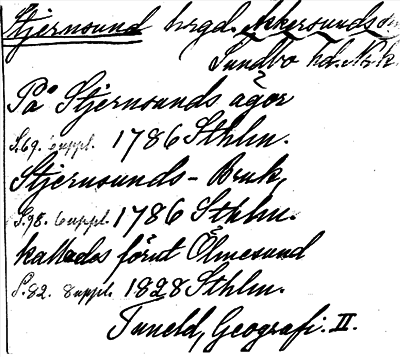 Stjernsund hrgd. Akkersunds sn
Sundbo hd. Nrk.
På Stjernsunds ägor
S. 69. 6 uppl. 1786 Sthlm.
Stjernsunds-Bruk,
S. 98. 6 uppl. 1786 Sthlm.
kallades förut Ölmesund
S. 82. 8 uppl. 1828 Sthlm.
Tuneld, Geografi. II.